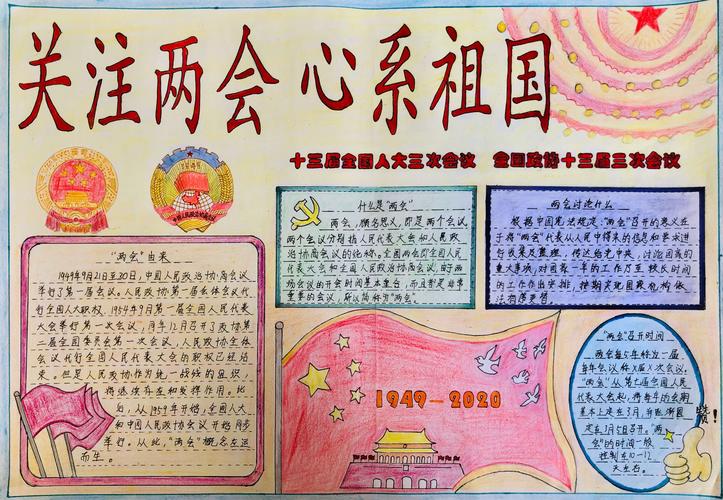 关注两会 心系祖国
十三届全国人大三次会议 全国政协十三届三次会议
"两会"由来
1949年9月21日至30日,中国人民政治协商会议
举行了第一届会议。人民政协第一届全体会议代
行全国人大职权。1954年9月第一届全国人民代表
大会举行第一次会议,同年12月召开了政协第
二届全国委员会第一次会议,人民政协全体
会议代行全国人民代表大会的职权已经结
束,但是人民政协作为统一战线的组织,
将继续存在和发挥作用。此
后,从1959年开始,全国人大
和中国人民政协会议开始同步
举行。从此,"两会"概念应运
而生。
什么是"两会"
两会,顾名思义,即是两个会议。
两个会议分别指人民代表大会和人民政
治协商会议的统称。全国两会即全国人民
代表大会和全国人民政治协商会议,由于两
场会议的开会时间基本重合,而且都是非常
重要的会议,所以简称为"两会"。
两会讨论什么
根据中国宪法规定:"两会"召开的意义在
于将"两会"代表从人民中得来的信息和要求进
行收集及整理,传达给党中央,讨论国家的
重大事项,对国家一年的工作乃至较长时间
的工作作出安排,
"两会"召开时间
两会每5年称为一届
每年会议称X届X次会议,
"两会"从第七届全国人民
代表大会起,将每年的会期
基本上定在3月,
定在3月5日召开。"两
会"的时间一般
控制在10-12
天左右。
1949-2020
中国人民政治协商会议